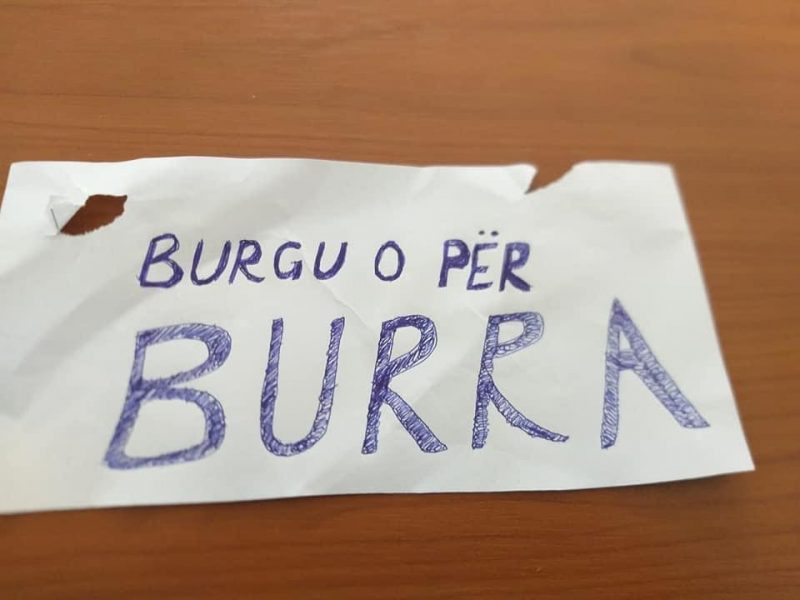 BURGU O PËR
BURRA